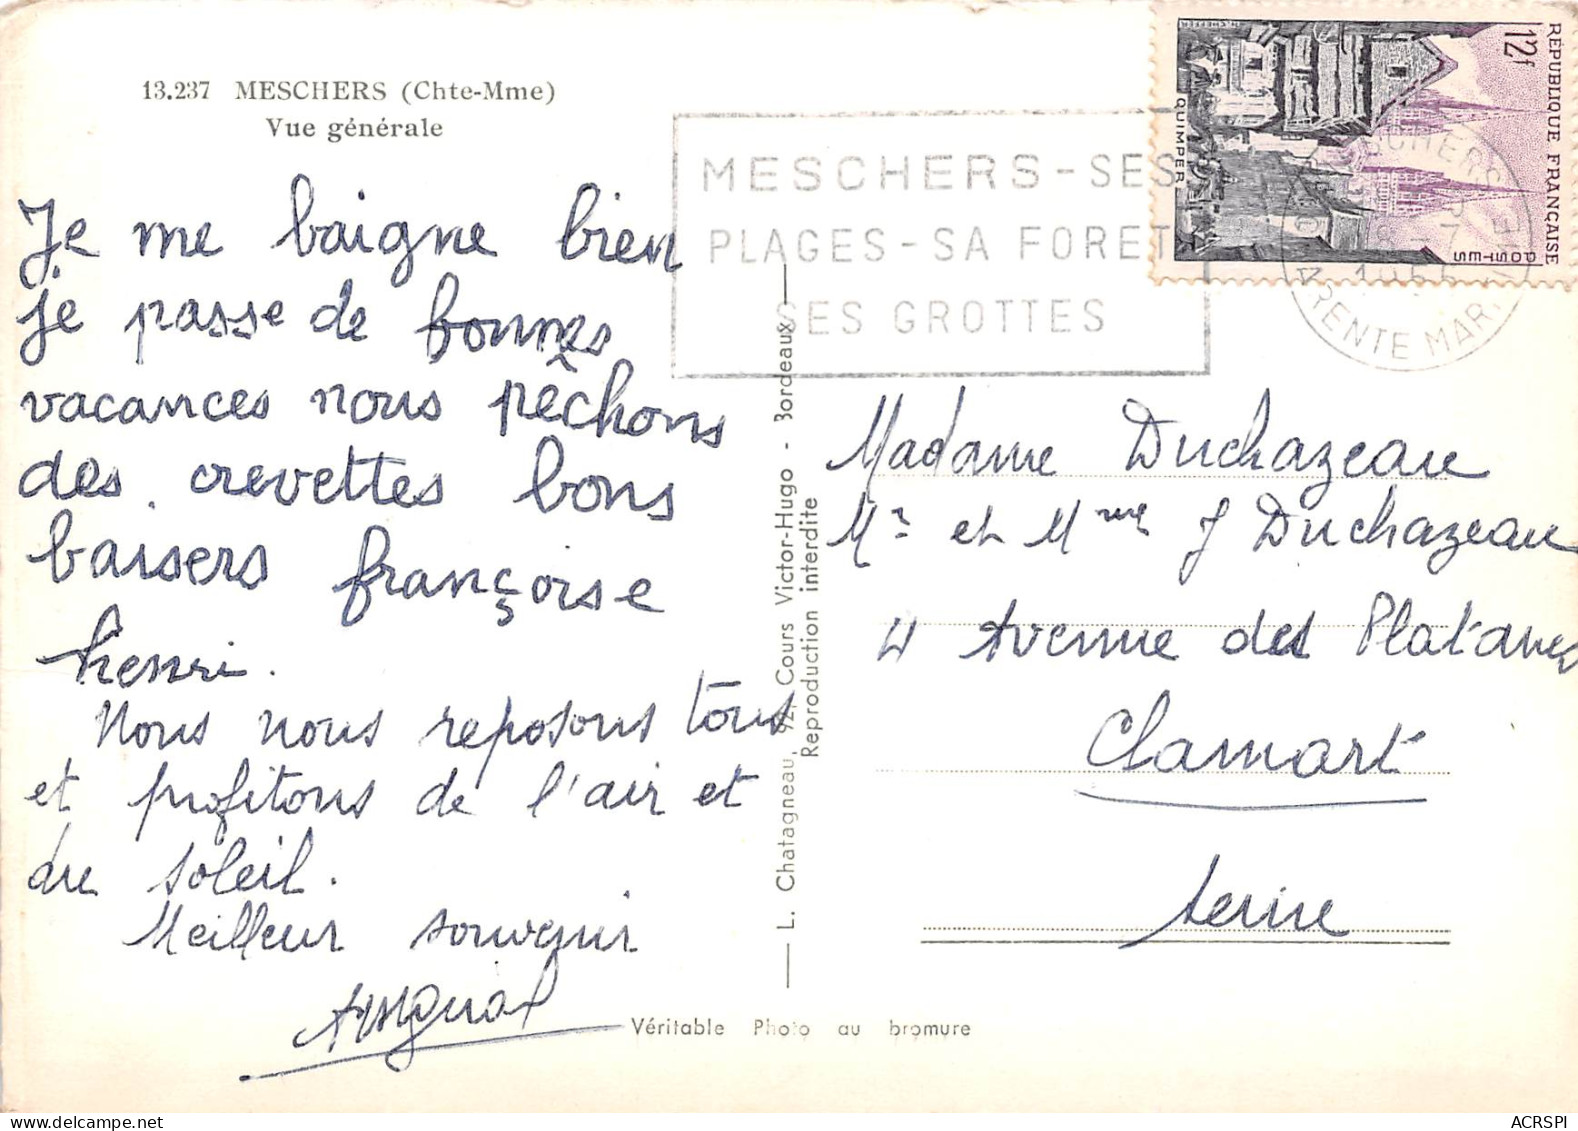 13.237 MESCHERS (Chte-Mme)
Vue générale
Je me baigne bien
je passe de bonnes
vacances nous pêchons
des crevettes bons
baisers françoise
henri.
Nous nous reposons tous
et profitons de l'air et
du soleil.
Meilleur souvenir
L. Chatagneau, 92, Cours Victor-Hugo - Bordeaux
Reproduction interdite
Véritable Photo au bromure
MESCHERS - SES
PLAGES - SA FORET
SES GROTTES
REPUBLIQUE FRANÇAISE
12f
POSTES
QUIMPER
Madame Duchazeau
Mr et Mme J Duchazeau
4 Avenue des Platanes
Clamart
Seine
ACRSPI